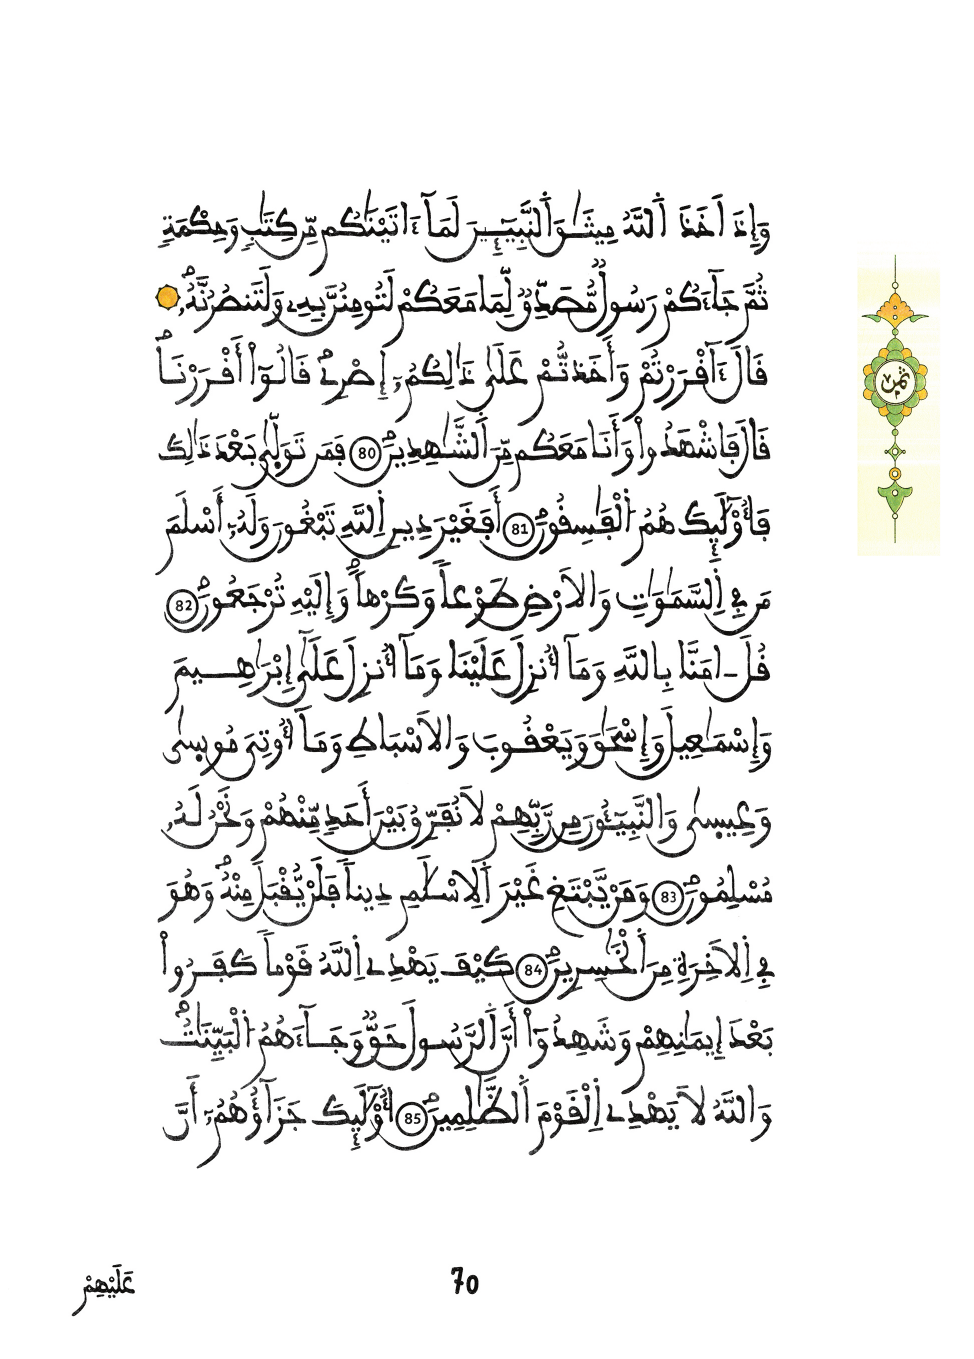 وَإِذَ اَخَذَ اَ۬للَّهُ مِيثَٰقَ اَ۬لنَّبِيٓـِٕينَ لَمَآ ءَاتَيْنَٰكُم مِّن كِتَٰبٖ وَحِكْمَةٖ
ثُمَّ جَآءَكُمْ رَسُولٞ مُّصَدِّقٞ لِّمَا مَعَكُمْ لَتُومِنُنَّ بِهِۦ وَلَتَنصُرُنَّهُۥۖ
قَالَ ءَآقْرَرْتُمْ وَأَخَذتُّمْ عَلَىٰ ذَٰلِكُمُۥٓ إِصْرِےۖ قَالُوٓاْ أَقْرَرْنَاۖ
قَالَ فَاشْهَدُواْ وَأَنَا مَعَكُم مِّنَ اَ۬لشَّٰهِدِينَۖ 80 فَمَن تَوَلّ۪ىٰ بَعْدَ ذَٰلِكَ
فَأُوْلَٰٓئِكَ هُمُ اُ۬لْفَٰسِقُونَۖ 81 أَفَغَيْرَ دِينِ اِ۬للَّهِ تَبْغُونَ وَلَهُۥٓ أَسْلَمَ
مَن فِے اِ۬لسَّمَٰوَٰتِ وَالَارْضِ طَوْعاٗ وَكَرْهاٗۖ وَإِلَيْهِ تُرْجَعُونَۖ 82
قُلَ ـ اٰمَنَّا بِاللَّهِ وَمَآ أُنزِلَ عَلَيْنَا وَمَآ أُنزِلَ عَلَىٰٓ إِبْرَٰهِيمَ
وَإِسْمَٰعِيلَ وَإِسْحَٰقَ وَيَعْقُوبَ وَالَاسْبَاطِ وَمَآ أُوتِيَ مُوس۪ىٰ
وَعِيس۪ىٰ وَالنَّبِيٓـُٔونَ مِن رَّبِّهِمْ لَا نُفَرِّقُ بَيْنَ أَحَدٖ مِّنْهُمْ وَنَحْنُ لَهُۥ
مُسْلِمُونَۖ 83 وَمَنْ يَّبْتَغِ غَيْرَ اَ۬لِاسْلَٰمِ دِيناٗ فَلَنْ يُّقْبَلَ مِنْهُۖ وَهُوَ
فِے اِ۬لَاخِرَةِ مِنَ اَ۬لْخَٰسِرِينَۖ 84 كَيْفَ يَهْدِے اِ۬للَّهُ قَوْماٗ كَفَرُواْ
بَعْدَ إِيمَٰنِهِمْ وَشَهِدُوٓاْ أَنَّ اَ۬لرَّسُولَ حَقّٞ وَجَآءَهُمُ اُ۬لْبَيِّنَٰتُۖ
وَاللَّهُ لَا يَهْدِے اِ۬لْقَوْمَ اَ۬لظَّٰلِمِينَۖ 85 أُوْلَٰٓئِكَ جَزَآؤُهُمُۥٓ أَنَّ
ثمن
عَلَيْهِمْ
70